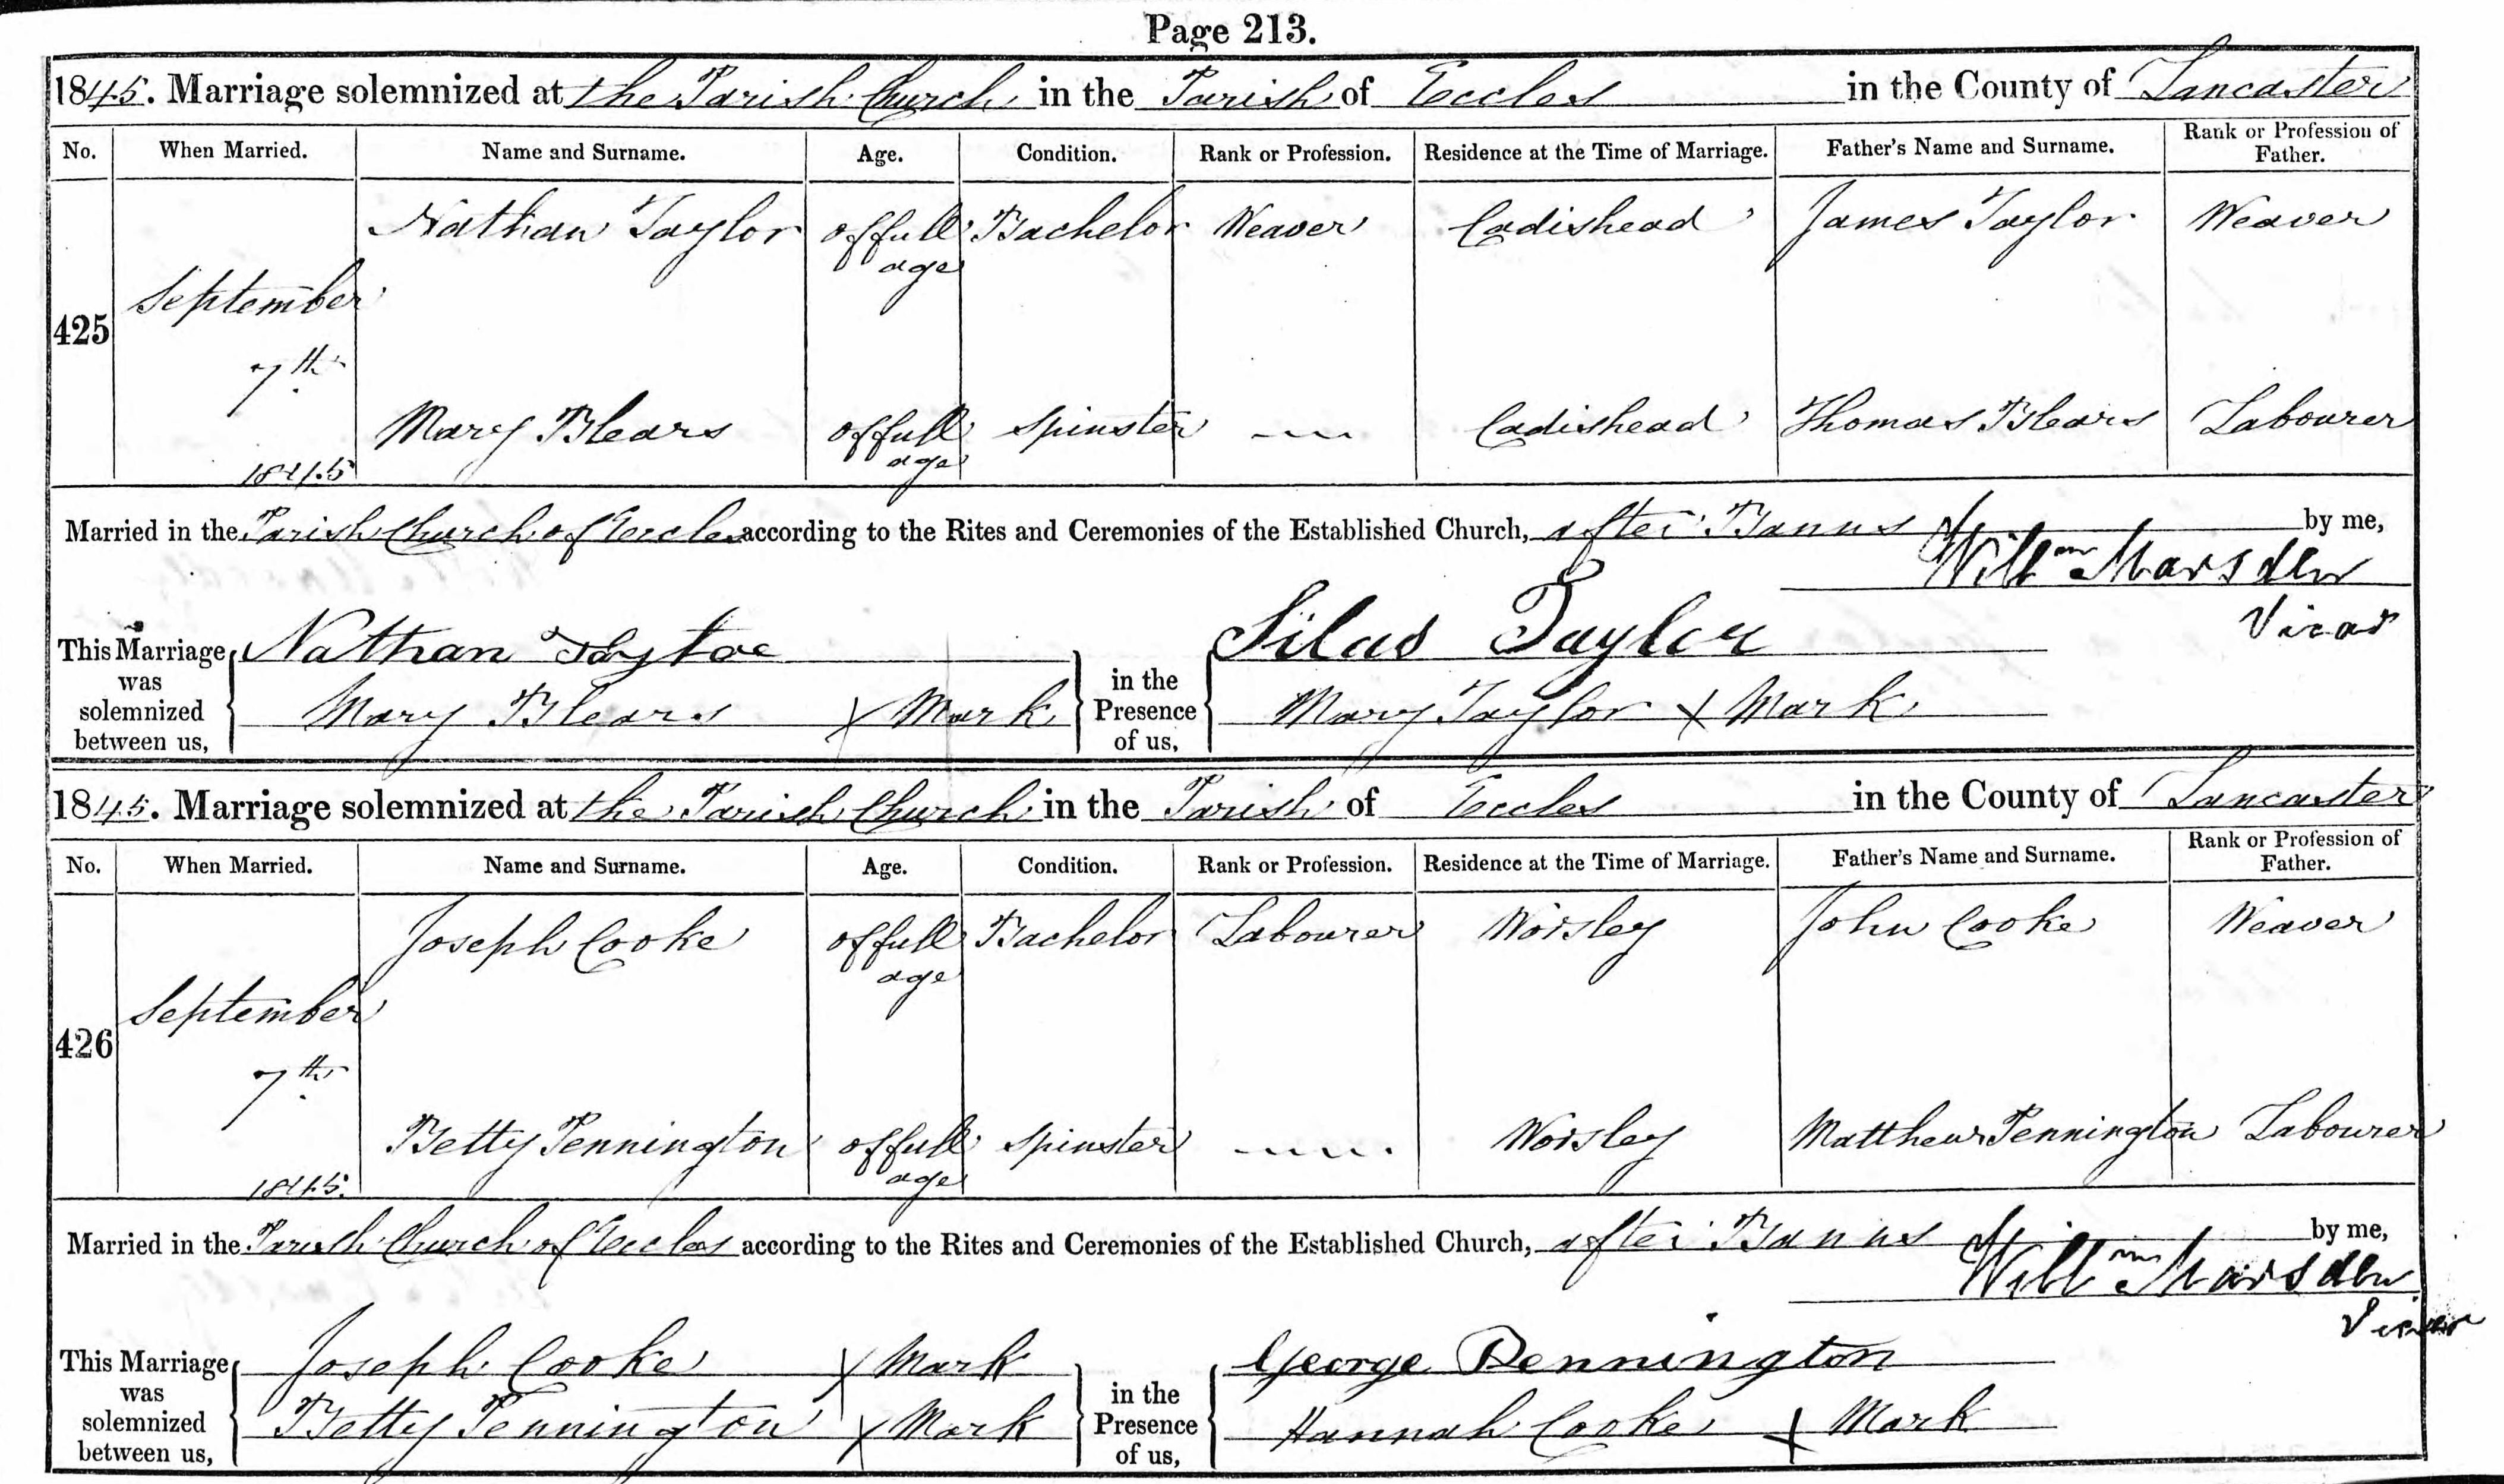 Page 213.
1845. Marriage solemnized at the Parish Church in the Parish of Eccles in the County of Lancaster
No. When Married. Name and Surname. Age. Condition. Rank or Profession. Residence at the Time of Marriage. Father's Name and Surname. Rank or Profession of Father.
425 September 7th 1845
Nathan Taylor of full age Bachelor Weaver Cadishead James Taylor Weaver
Mary Blears of full age Spinster ---- Cadishead Thomas Blears Labourer
Married in the Parish Church of Eccles according to the Rites and Ceremonies of the Established Church, after Banns by me,
Willm Marsden
Vicar
This Marriage was solemnized between us,
Nathan Taylor
Mary Blears X Mark
in the Presence of us,
Silas Taylor
Mary Taylor X Mark
1845. Marriage solemnized at the Parish Church in the Parish of Eccles in the County of Lancaster
No. When Married. Name and Surname. Age. Condition. Rank or Profession. Residence at the Time of Marriage. Father's Name and Surname. Rank or Profession of Father.
426 September 7th 1845.
Joseph Cooke of full age Bachelor Labourer Worsley John Cooke Weaver
Betty Pennington of full age Spinster ----- Worsley Matthew Pennington Labourer
Married in the Parish Church of Eccles according to the Rites and Ceremonies of the Established Church, after Banns by me,
Willm Marsden
Vicar
This Marriage was solemnized between us,
Joseph Cooke X Mark
Betty Pennington X Mark
in the Presence of us,
George Pennington
Hannah Cooke X Mark